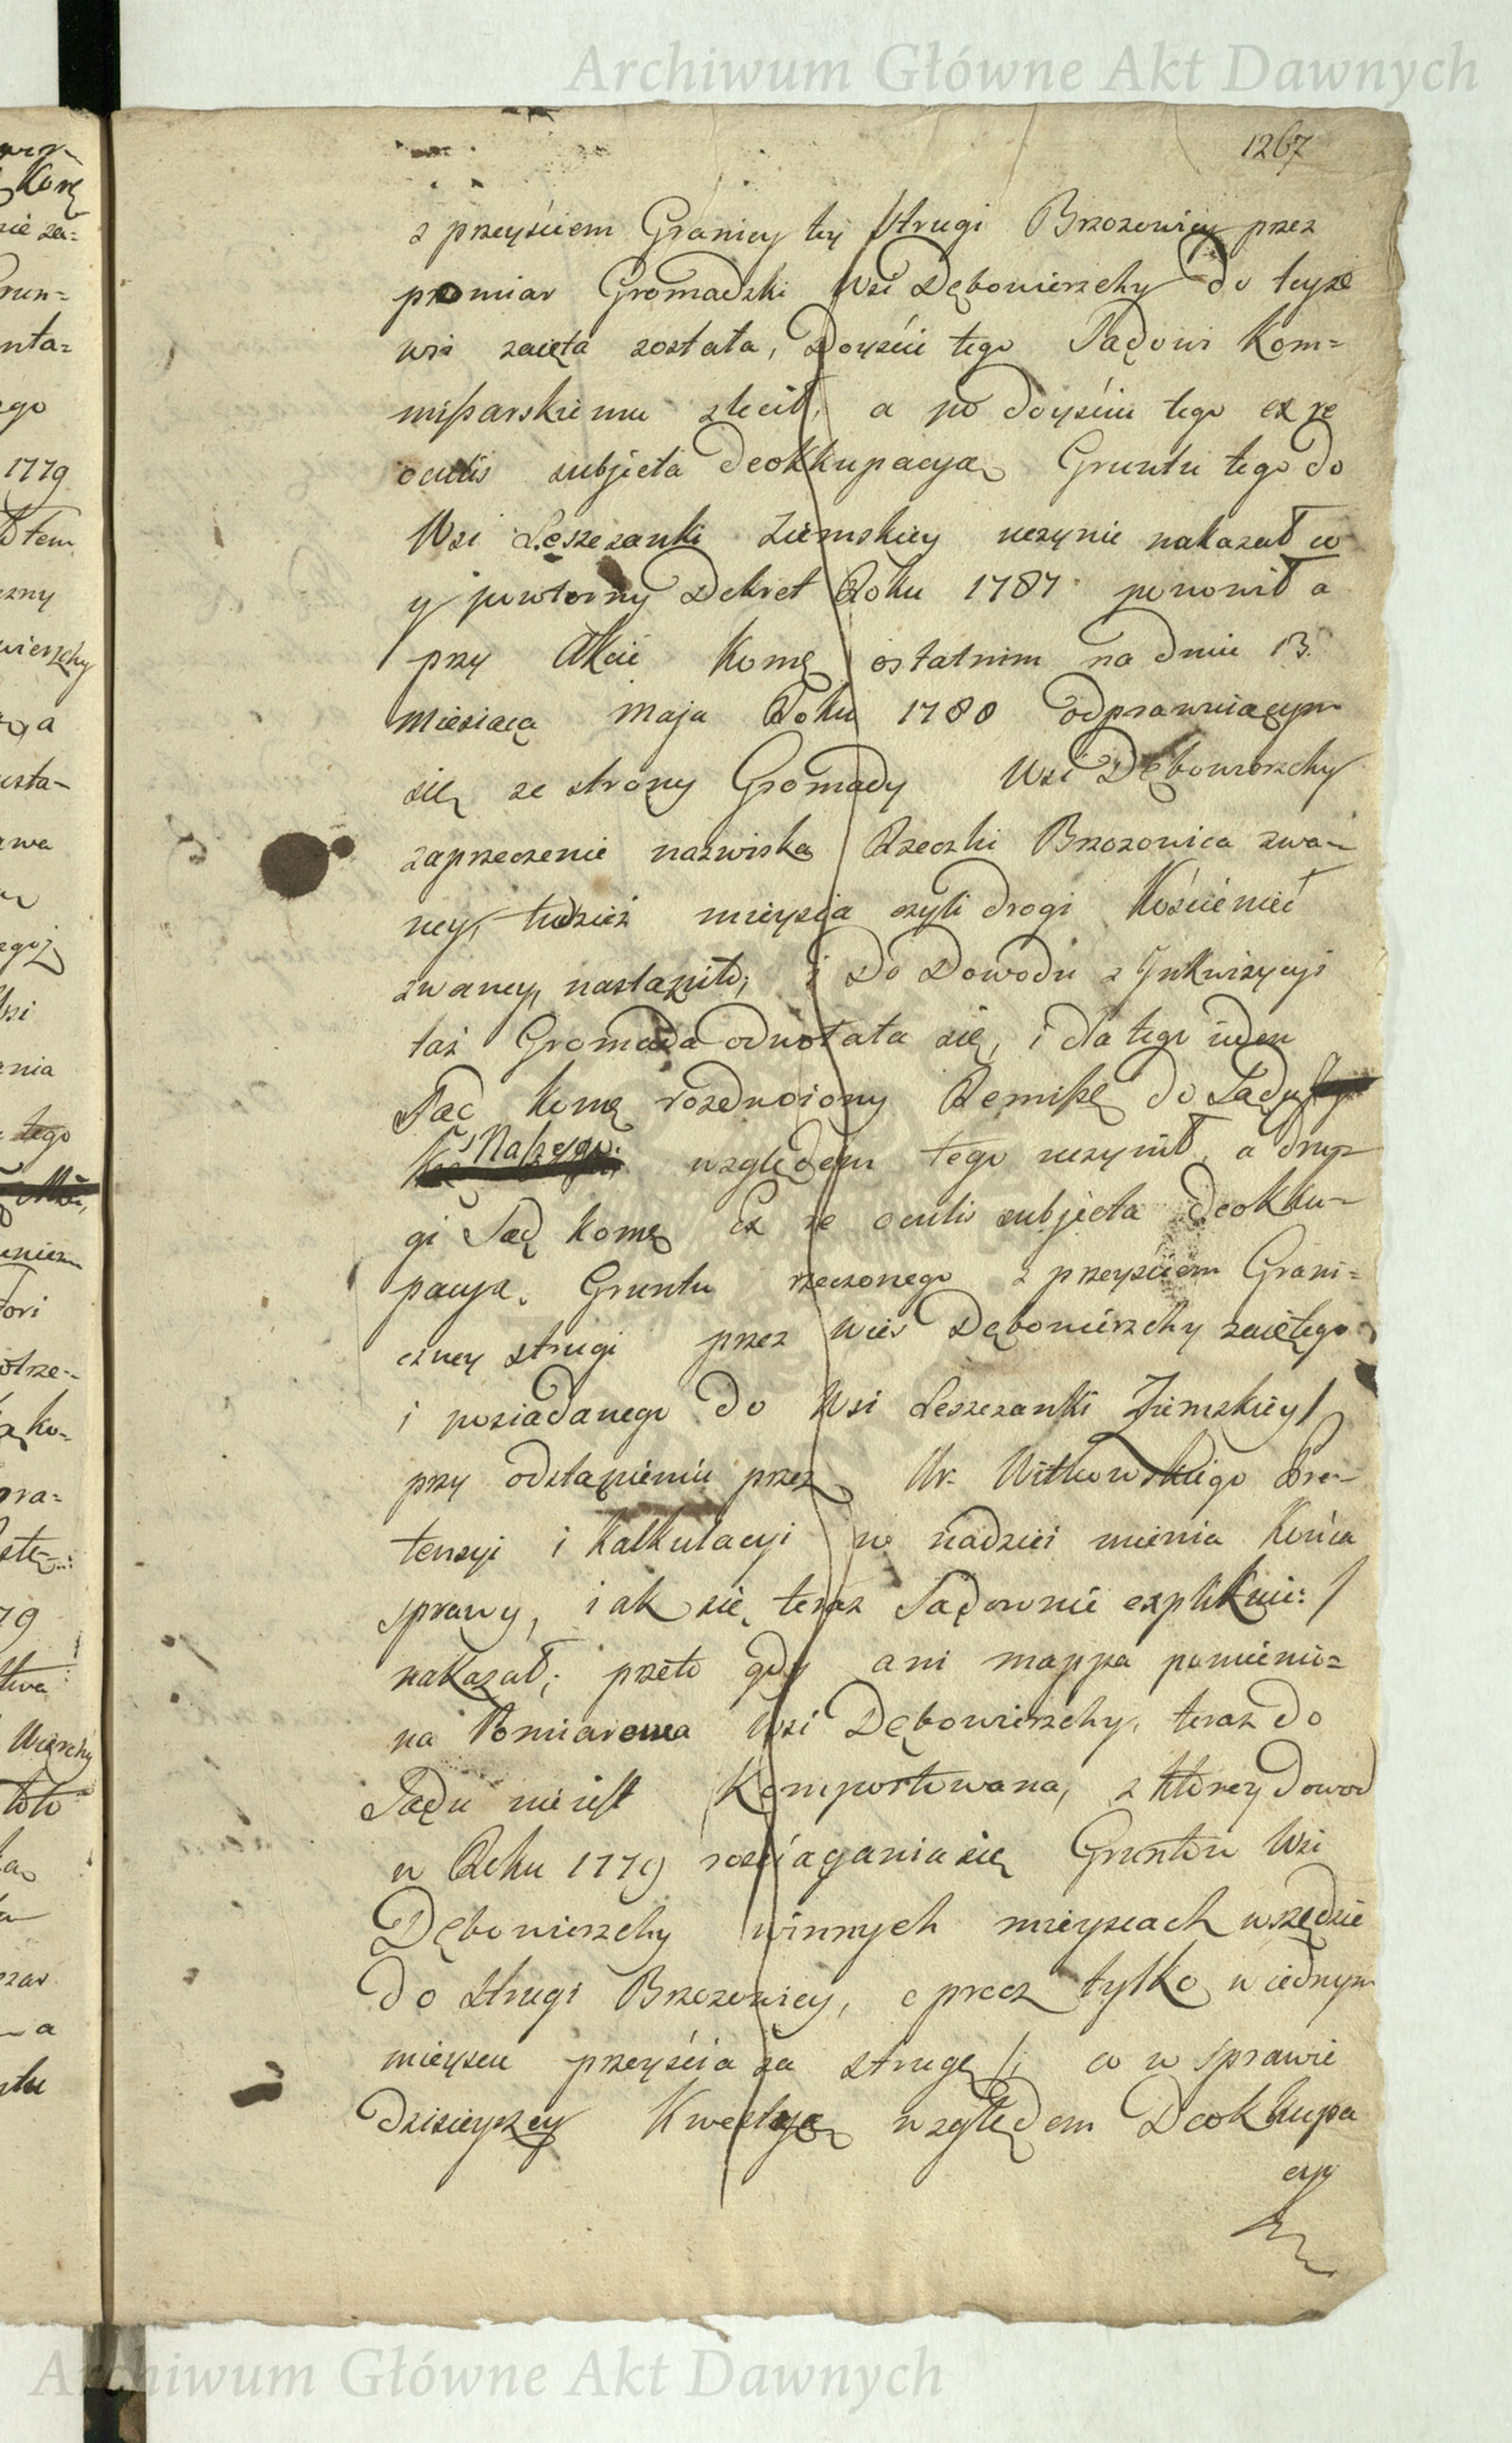 Archiwum Główne Akt Dawnych
1267
z przeyściem Granicy tey strugi Brzozowicy przez
pomiar Gromadzki Wsi Dębowierzchy do teyże
wsi zaięta została, Doyście tego Sądowi Kom=
mißarskiemu zlecił, a po doyściu tego ex re
oculis subjecta deokkupacyą Gruntu tego do
Wsi Leszczanki Ziemskiey uczynić nakazał co
y powtorny Dekret Roku 1787 ponowił a
przy Akcie Komę ostatnim na dniu 13
Miesiąca Maja Roku 1788 odprawuiącym
się ze strony Gromady Wsi Dębowierzchy
zaprzeczenie nazwiska Rzeczki Brzozowica zwa=
ney, tudzież mieysca czyli drogi Kościenieć
zwaney, nastąpiło, i do Dowodu z Inkwizycyi
taż Gromada odwołała się, i dla tego ieden
Sąd Komę rozdwoiony Remißę do Sądu
Naszego względem tego uczynił, a dru=
gi Sąd Komę ex re oculis subjecta deokku=
pacyą Gruntu rzeczonego z przeyściem Grani=
czney strugi przez wieś Dębowierzchy zaiętego
i posiadanego do Wsi Leszczanki Ziemskiey /
przy odstąpieniu przez Ur. Witkowskiego Pre=
tensyi i Kalkulacyi w nadziei mienia Końca
sprawy, iak się teraz Sądownie explikuie: /
nakazał; przeto gdy ani mappa pomienio=
na Pomiarowa Wsi Dębowierzchy, teraz do
Sądu nie iest Komportowana, z ktorey dowod
w Roku 1779 rościągania się Gruntow Wsi
Dębowierzchy w innych mieyscach wszędzie
do strugi Brzozowicy, oprocz tylko w iednym
mieyscu przeyścia za strugę /; co w sprawie
dzisieyszey Kwestyą względem Deokkupa
cyi
Archiwum Główne Akt Dawnych